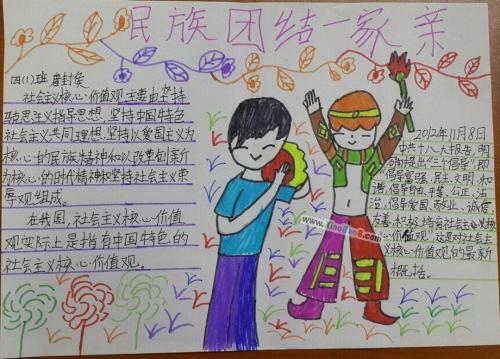 民族团结一家亲
四(1)班 唐封俟
社会主义核心价值观主要由坚持
马克思主义指导思想,坚持中国特色
社会主义共同理想,坚持以爱国主义为
核心的民族精神和以改革创新为
核心的时代精神和坚持社会主义荣
辱观组成。
在我国,社会主义核心价值
观实际上是指有中国特色的
社会主义核心价值观。
2012年11月8日
中共十八大报告,明
确提出"三个倡导"即
"倡导富强、民主、文明、和
谐,倡导自由、平等、公正、法
治,倡导爱国、敬业、诚信、
友善,积极培育社会主义
核心价值观",这是对社会主
义核心价值观的最新
概括。